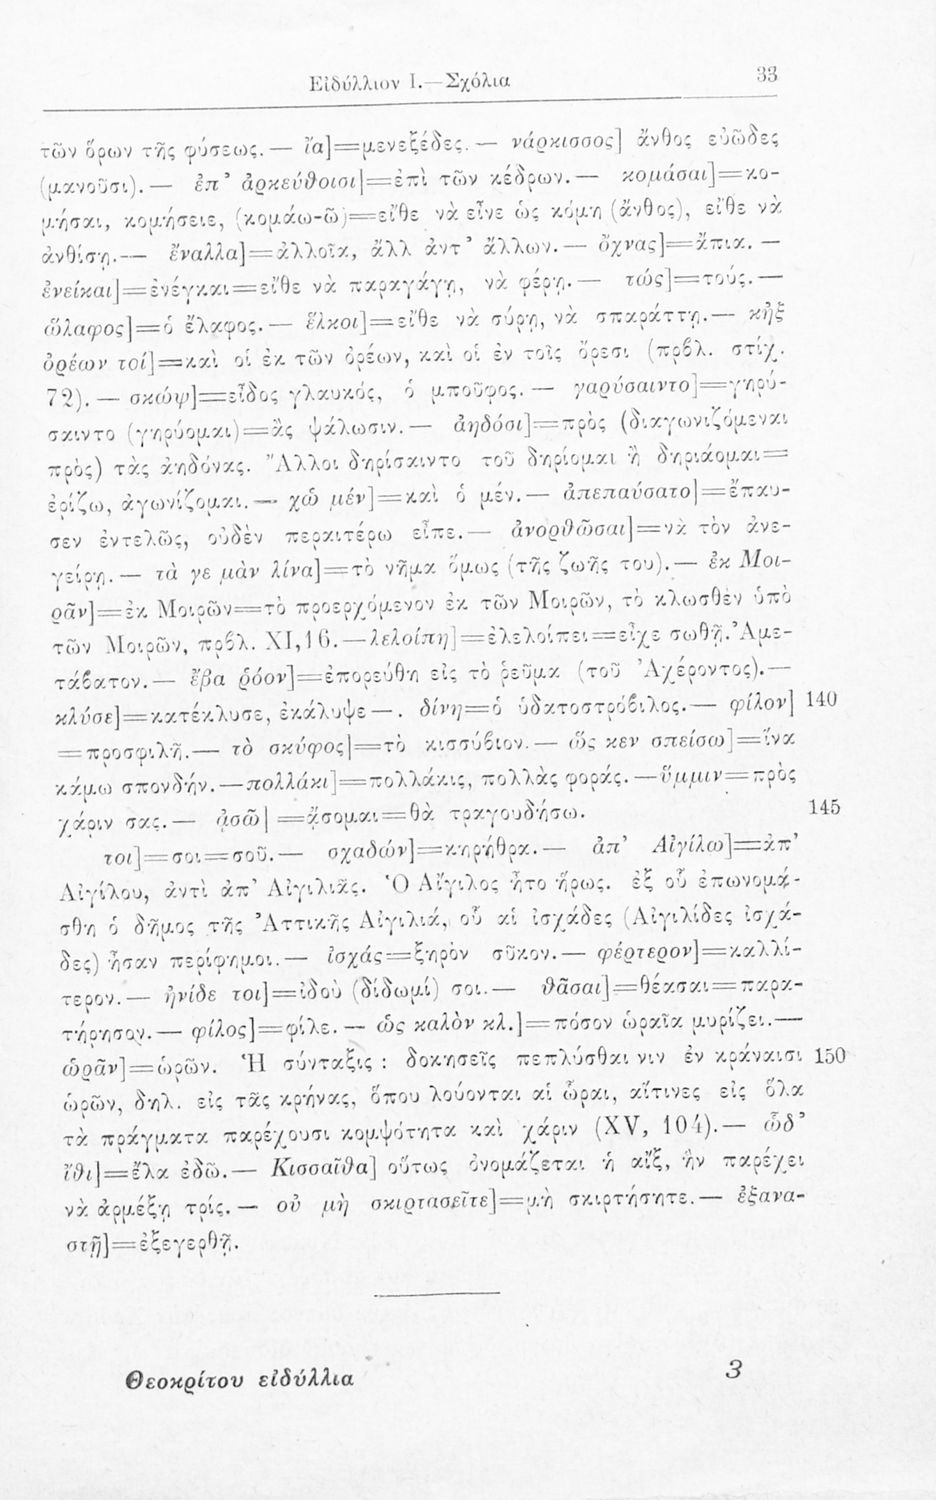 Εἰδύλλιον Ι.—Σχόλια 33
τῶν ὅρων τῆς φύσεως.— ἴα]=μενεξέδες.— νάρκισσος] ἄνθος εὐῶδες
(μανοῦσι).— ἐπ' ἀρκεύθοισι]=ἐπὶ τῶν κέδρων.— κομάσαι]=κο-
μήσαι, κομήσειε, (κομάω-ῶ)=εἴθε νὰ εἶνε ὡς κόμη (ἄνθος), εἴθε νὰ
ἀνθίσῃ.— ἔναλλα]=ἀλλοῖα, ἄλλ ἀντ' ἄλλων.— ὄχνας]=ἄπια.—
ἐνείκαι]=ἐνέγκαι=εἴθε νὰ παραγάγῃ, νὰ φέρῃ.— τώς]=τούς.—
ὤλαφος]=ὁ ἔλαφος.— ἕλκοι]=εἴθε νὰ σύρῃ, νὰ σπαράττῃ.— κἠξ
ὀρέων τοί]=καὶ οἱ ἐκ τῶν ὀρέων, καὶ οἱ ἐν τοῖς ὄρεσι (πρβλ. στίχ.
72).— σκώψ]=εἶδος γλαυκός, ὁ μποῦφος.— γαρύσαιντο]=γηρύ-
σαιντο (γηρύομαι)=ἂς ψάλωσιν.— ἀηδόσι]=πρὸς (διαγωνιζόμεναι
πρὸς) τὰς ἀηδόνας. Ἄλλοι δηρίσαιντο τοῦ δηρίομαι ἢ δηριάομαι=
ἐρίζω, ἀγωνίζομαι.— χὠ μέν]=καὶ ὁ μέν.— ἀπεπαύσατο]=ἔπαυ-
σεν ἐντελῶς, οὐδὲν περαιτέρω εἶπε.— ἀνορθῶσαι]=νὰ τὸν ἀνε-
γείρῃ.— τὰ γε μὰν λίνα]=τὸ νῆμα ὅμως (τῆς ζωῆς του).— ἐκ Μοι-
ρᾶν]=ἐκ Μοιρῶν=τὸ προερχόμενον ἐκ τῶν Μοιρῶν, τὸ κλωσθὲν ὑπὸ
τῶν Μοιρῶν, πρβλ. XI,16.—λελοίπη]=ἐλελοίπει=εἶχε σωθῆ. Ἀμε-
τάβατον.— ἔβα ῥόον]=ἐπορεύθη εἰς τὸ ῥεῦμα (τοῦ Ἀχέροντος).—
κλύσε]=κατέκλυσε, ἐκάλυψε—. δίνη=ὁ ὑδατοστρόβιλος.— φίλον] 140
=προσφιλῆ.— τὸ σκύφος]=τὸ κισσύβιον.— ὥς κεν σπείσω]=ἵνα
κάμω σπονδήν.—πολλάκι]=πολλάκις, πολλὰς φοράς.—ὔμμιν=πρὸς
χάριν σας.— ᾀσῶ]=ᾄσομαι=θὰ τραγουδήσω. 145
τοι]=σοι=σοῦ.— σχαδών]=κηρήθρα.— ἀπ' Αἰγίλω]=ἀπ'
Αἰγίλου, ἀντὶ ἀπ' Αἰγιλιᾶς. Ὁ Αἴγιλος ἦτο ἥρως. ἐξ οὗ ἐπωνομά-
σθη ὁ δῆμος τῆς Ἀττικῆς Αἰγιλιά, οὗ αἱ ἰσχάδες (Αἰγιλίδες ἰσχά-
δες) ἦσαν περίφημοι.— ἰσχάς=ξηρὸν σῦκον.— φέρτερον]=καλλί-
τερον.— ἠνίδε τοι]=ἰδοὺ (δίδωμί) σοι.— θᾶσαι]=θέασαι=παρα-
τήρησον.— φίλος]=φίλε.— ὡς καλὸν κλ.]=πόσον ὡραῖα μυρίζει.—
ὡρᾶν]=ὡρῶν. Ἡ σύνταξις : δοκησεῖς πεπλύσθαι νιν ἐν κράναισι 150
ὡρῶν, δηλ. εἰς τὰς κρήνας, ὅπου λούονται αἱ ὧραι, αἵτινες εἰς ὅλα
τὰ πράγματα παρέχουσι κομψότητα καὶ χάριν (XV, 104).— ὧδ'
ἴθι]=ἔλα ἐδῶ.— Κισσαῖθα] οὕτως ὀνομάζεται ἡ αἴξ, ἣν παρέχει
νὰ ἀρμέξῃ τρίς.— οὐ μὴ σκιρτασεῖτε]=μὴ σκιρτήσητε.— ἐξανα-
στῇ]=ἐξεγερθῇ.
Θεοκρίτου εἰδύλλια 3